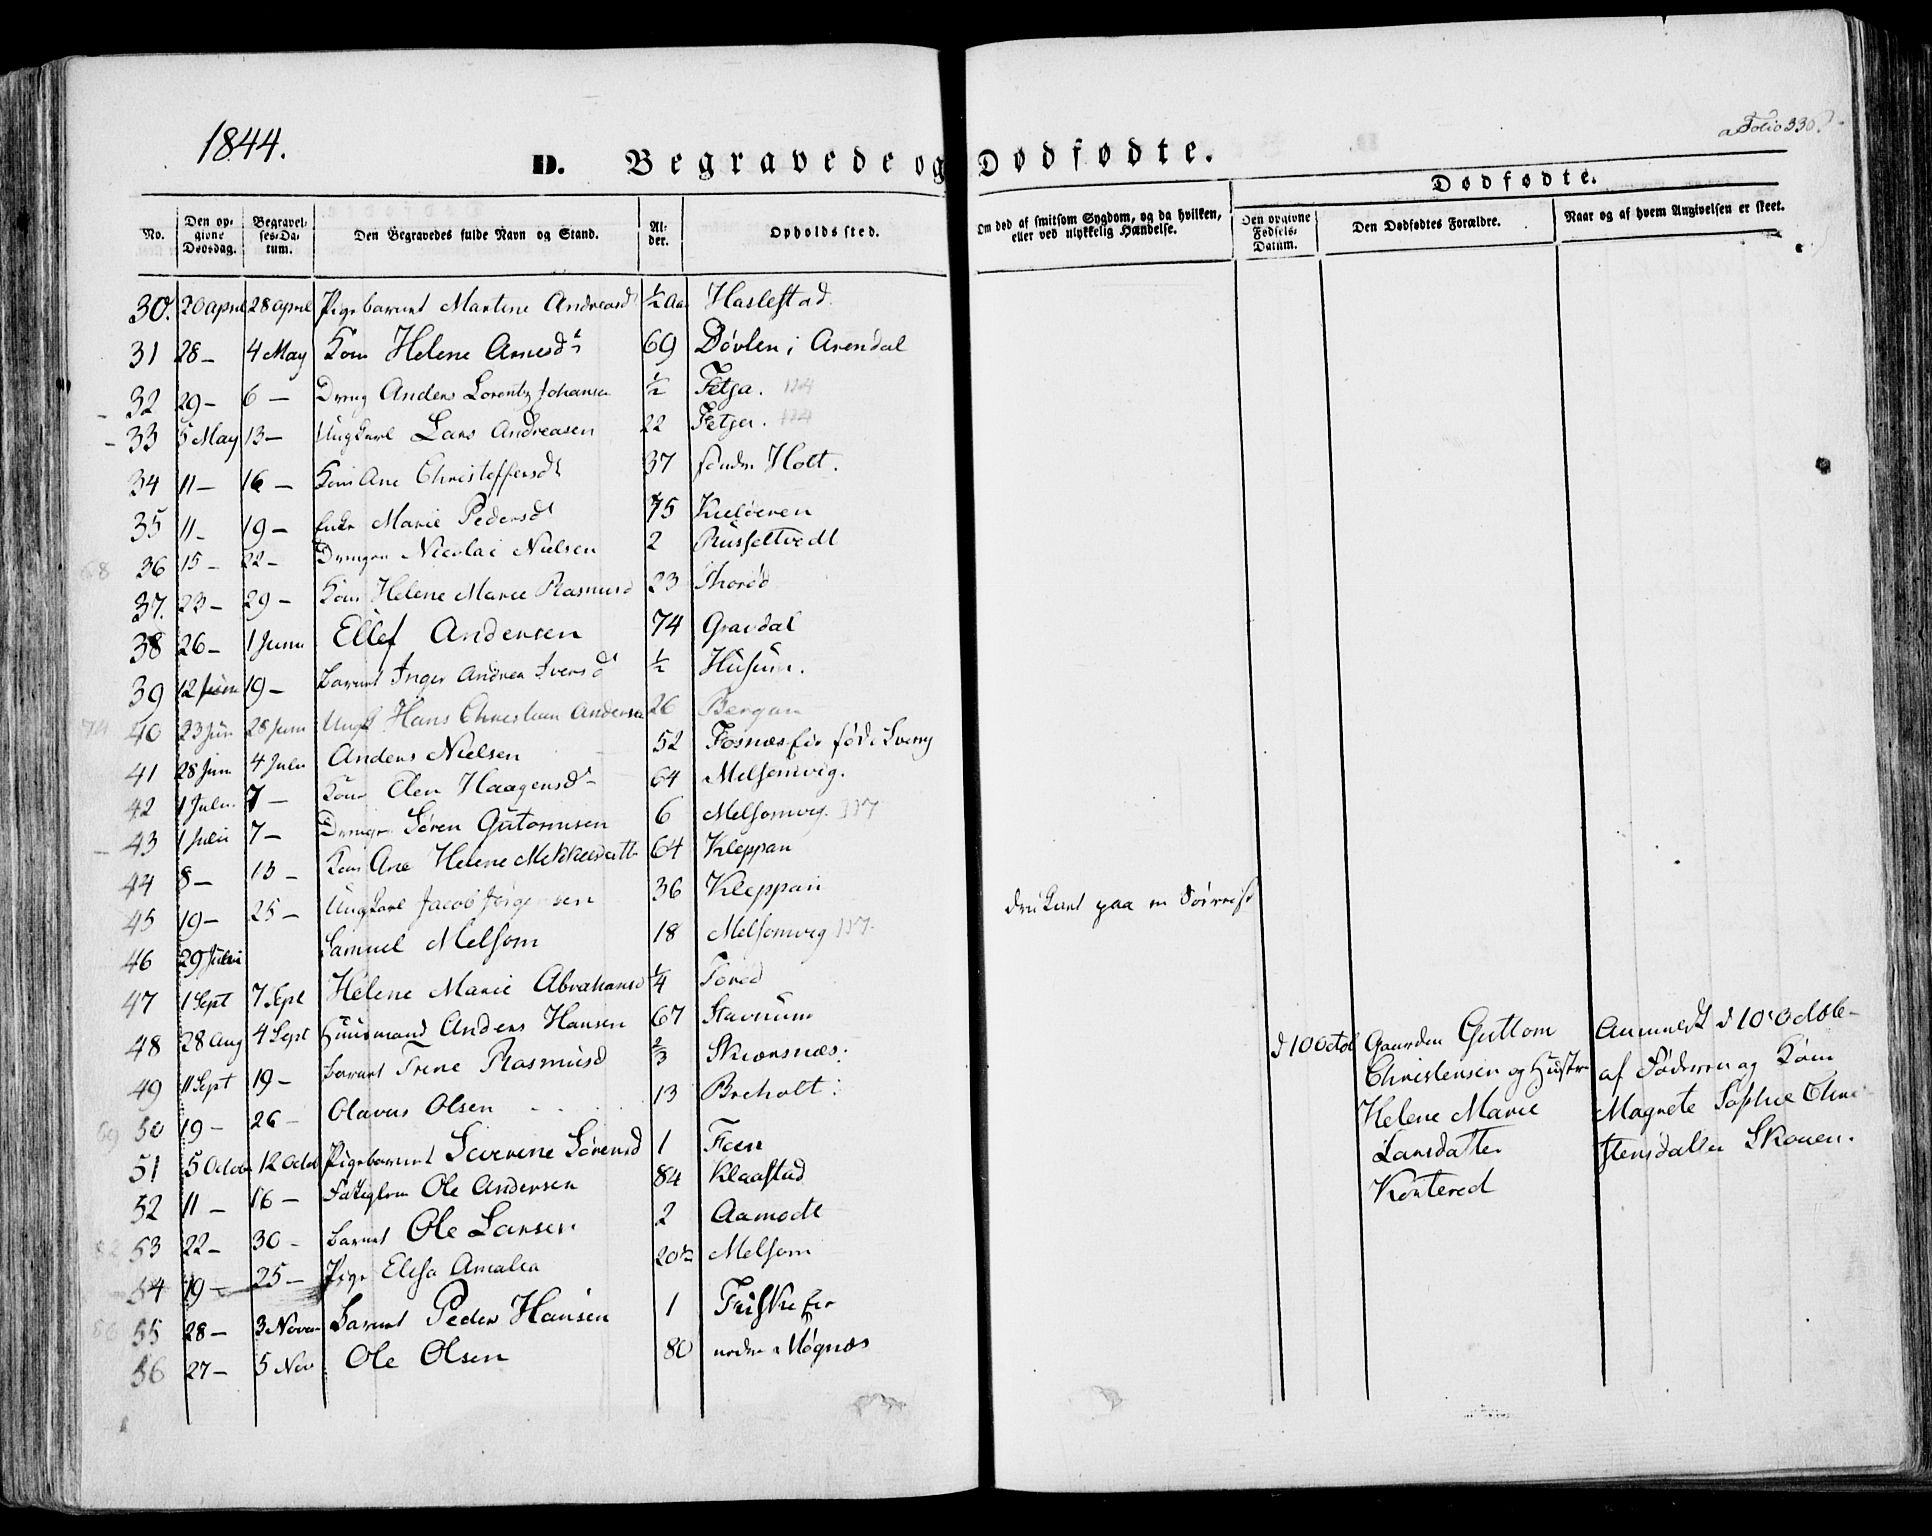 1844.
Folio 330
D. Begravede og Dødfødte.
Dødfødte.
No.
Den opgivne Dødsdag.
Begravelses-Datum.
Den Begravedes fulde Navn og Stand.
Alder.
Opholdssted.
Om død af smitsom Sygdom, og da hvilken, eller ved ulykkelig Hændelse.
Den opgivne Fødsels-Datum.
Den Dødfødtes Forældre.
Naar og af hvem Angivelsen er skeet.
30. 20 april 28 april Pigebarnet Martine Andreasd ½ Aar Haslestad.
31 28 – 4 May Kone Helene Arnesdt 69 Døvlen i Arendal
32 29 – 6 – Dreng Anders Lorentz Johansen ½ Fetja. 124
33 5 May 13 – Ungkarl Lars Andreasen 22 Fetja. 124
34 11 – 16 – Kone Ane Christoffersdt 37 søndre Holt.
35 11 – 19 – Enke Marie Pedersdt 75
68 36 15 – 22 – Drengen Nicolai Nielsen 2 Russeltvedt
37. 23 – 29 – Kone Helene Marie Rasmusd 23 Thorød
38 26 – 1 Juni Ellef Andersen 74 Gravdal
39 12 Juni 19 – Barnet Inger Andrea Iversdt ½ Husum.
74 40 23 Jun 28 Juni Ungk Hans Christian Andersen 26 Bergan
41 28 Jun 4 Julii Anders Nielsen 52 Fosnæs Eie
42 1 Julii 7 – Kone Elen Haagensdt 64 Melsomvig.
43 1 Julii 7 – Dreng Søren Gutormsen 6 Melsomvig. 117
44 8 – 13 – Kone Ane Helene Mikkelsdatt 64 Kleppan
45 19 – 25 – Ungkarl Jacob Jørgensen 36 Kleppan
46 29 Julii Samuel Melsom 18 Melsomvig 117. druknet paa en
47 1 Sept 7 Sept Helene Marie Abrahamsd ¼ Tored
48 28 Aug 4 Sept Huusmand Anders Hansen 67 Staurum
49 11 Sept 19 – Barnet Trine Rasmusd ⅔ Skiærsnæs.
69 50 19 – 26 – Olavus Olsen 13 Breholt
51 5 Octob 12 Octob Pigebarnet Severine Sørensd 1 Feen
52 11 – 16 – Fattiglem Ole Andersen 84 Klaastad
82 53 22 – 30 – Barnet Ole Larsen 2 Aamodt
54 19 – 25 – Pige Elisa Amalia Melsom
86 55 28 – 3 Novem Barnet Peder Hansen 1
56 27 – 5 Nov Ole Olsen 80 nedre Møgnæs
d 10 Octob Gaardm Guttom Anmeldt d 10 Octob
Christensen og Hustr af Faderen og Kone
Helene Marie Magrete Sophie Chri
Larsdatter stensdatter Skouen.
Kontered